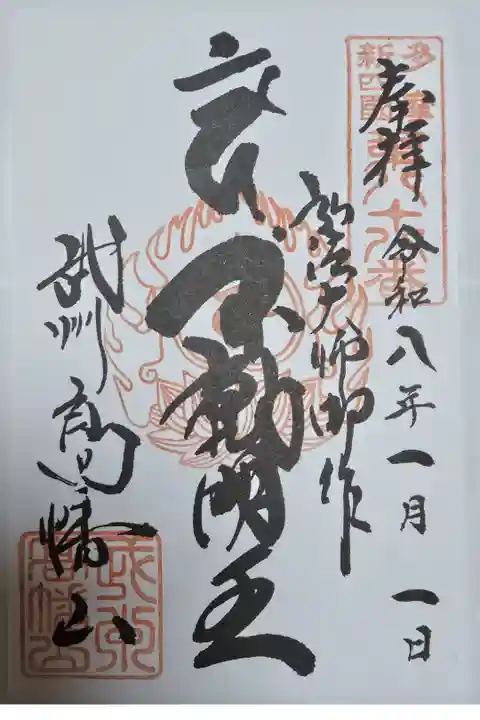 奉拝
令和八年一月一日
多摩
新四國
第八十八番
師御作
不動明王
武州 高幡山
武州
高幡山